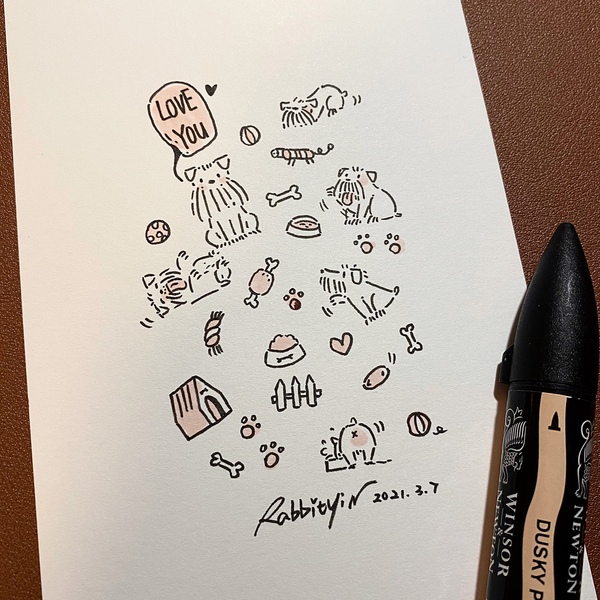 LOVE
YOU
RabbityiN 2021.3.7
WINSOR
NEWTON
DUSKY P
NEWTON